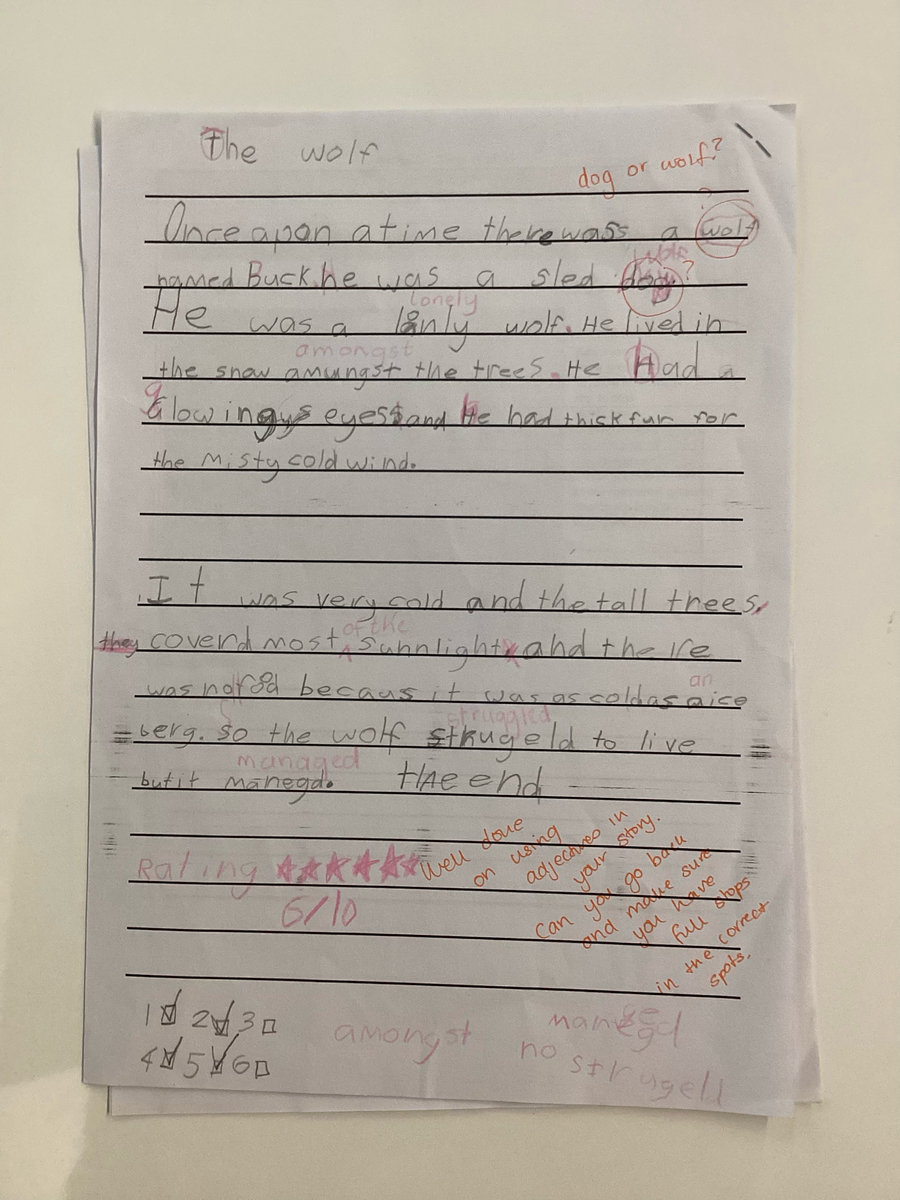 The wolf
dog or wolf?
Once apon a time there wass a wolf
named Buck. he was a sled dog?
wolf
lonely
He was a lanly wolf. He lived in
amongst
the snow amungst the trees. He Had a
g
Glowing eyes and He had thick fur for
the misty cold wind.
It was very cold and the tall trees.
of the
they coverd most sunnlight and the ice
an
was not becaus it was as cold as a ice
struggled
berg. so the wolf strugeld to live
managed
but it manegd. the end
Rating
6/10
Well done
on using
adjectives in
your story.
Can you go back
and make sure
you have
full stops
in the correct
spots.
1 2 3
4 5 6
amongst
manegd
no strugell